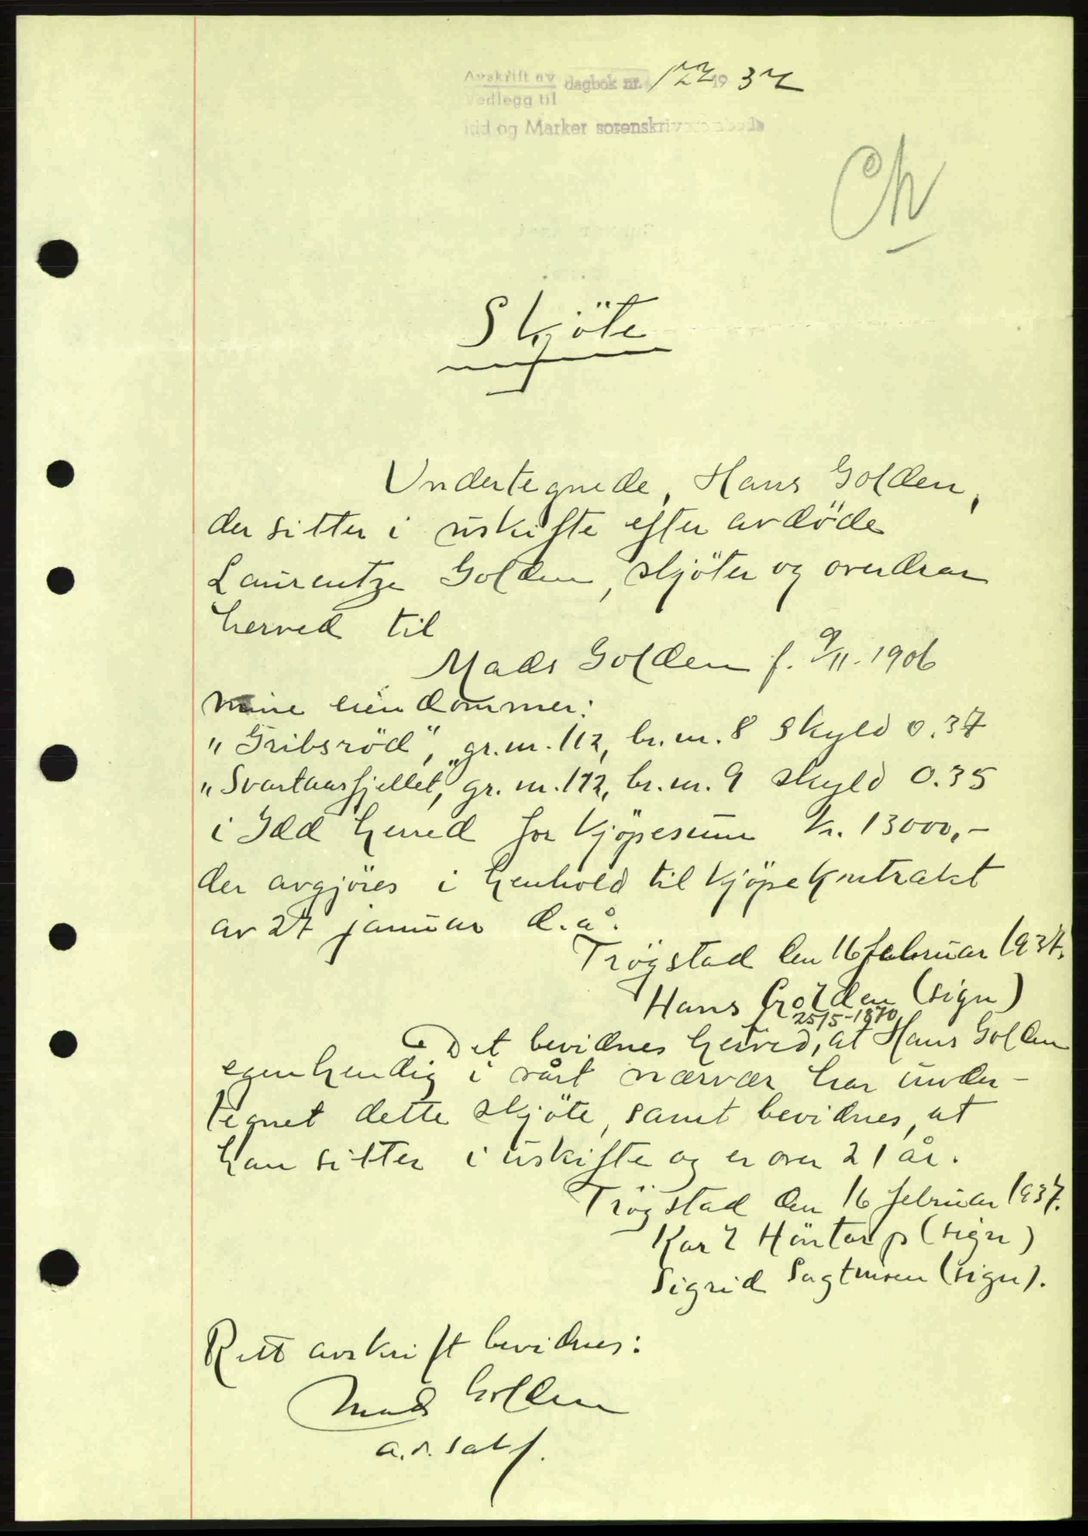 Avskrift av dagbok nr. 122 1937
Vedlegg til
Idd og Marker sorenskriverembede
Ch
Skjöte
Undertegnede, Hans Golden,
der sitter i uskifte efter avdöde
Laurentze Golden, skjöter og overdrar
herved til
Mads Golden f. 9/11. 1906
mine eiendommer:
"Gribsröd", gr. nr. 112, br. nr. 8 skyld 0.37
"Svartaasfjellet", gr. nr. 112, br. nr. 9 skyld 0.35
i Idd herred for kjöpesum kr. 13000,-
der avgjöres i henhold til kjöpekontrakt
av 27 januar d.å.
Trögstad den 16 februar 1937.
Hans Golden (sign)
25/5-1870
Det bevidnes herved, at Hans Golden
egenhendig i vårt nærvær har under-
tegnet dette skjöte, samt bevidnes, at
han sitter i uskifte og er over 21 år.
Trögstad den 16 februar 1937.
Karl Höntorp (sign)
Sigrid (sign).
Rett avskrift bevidnes:
Mads Golden
o.r.sakf.